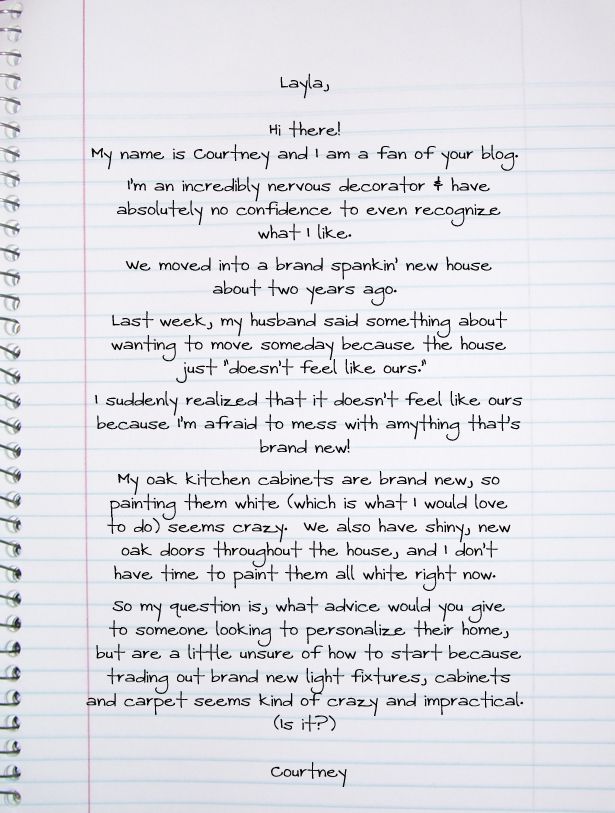 Layla,
Hi there!
My name is Courtney and I am a fan of your blog.
I'm an incredibly nervous decorator & have
absolutely no confidence to even recognize
what I like.
We moved into a brand spankin' new house
about two years ago.
Last week, my husband said something about
wanting to move someday because the house
just "doesn't feel like ours."
I suddenly realized that it doesn't feel like ours
because I'm afraid to mess with amything that's
brand new!
My oak kitchen cabinets are brand new, so
painting them white (which is what I would love
to do) seems crazy. We also have shiny, new
oak doors throughout the house, and I don't
have time to paint them all white right now.
So my question is, what advice would you give
to someone looking to personalize their home,
but are a little unsure of how to start because
trading out brand new light fixtures, cabinets
and carpet seems kind of crazy and impractical.
(Is it?)
Courtney